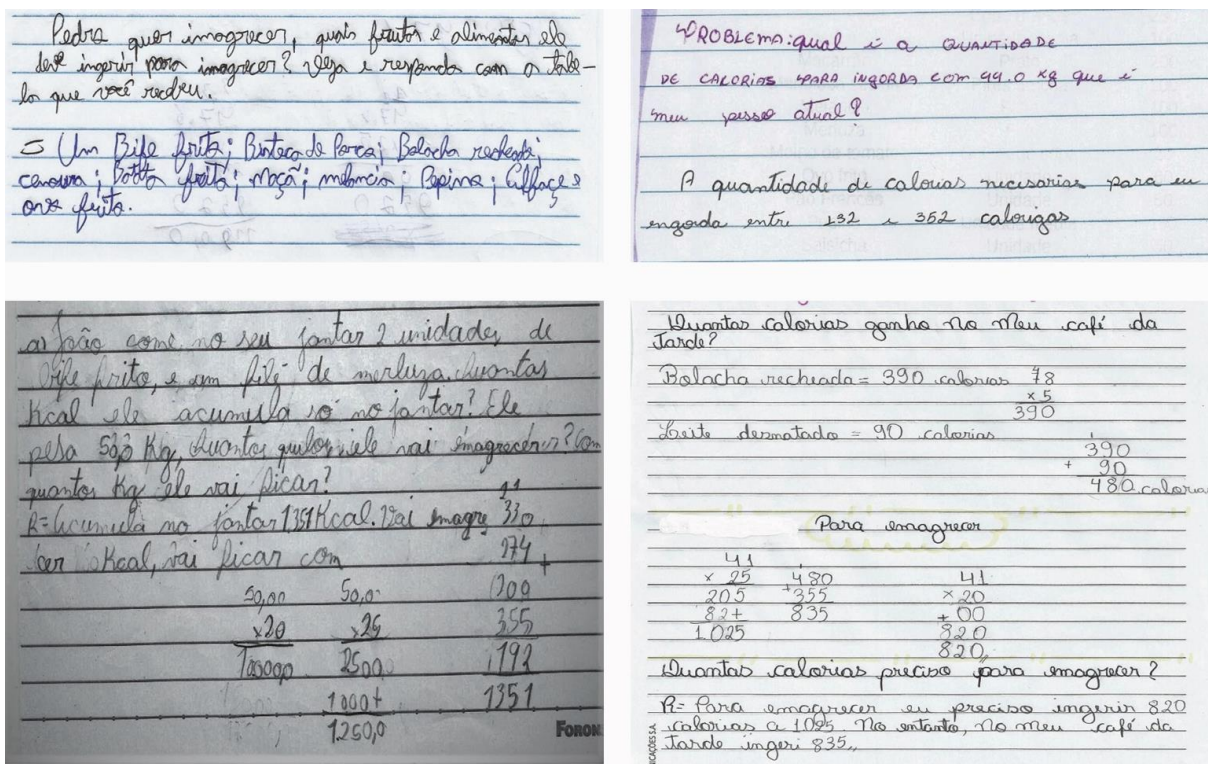 Pedro quer imagrecer, quais frutos e alimentos ele
deve ingerir para imagrecer? Veja e responda com a tabe-
la que você recebeu.
Um Bife frito; Bisteca de Porco; Bolacha recheada;
cenoura; Batata frita; maçã; melancia; Pepino; Alface e
ovo frito.
PROBLEMA: qual é a QUANTIDADE
DE CALORIAS PARA INGORDA COM 44.0 Kg que é
meu pesso atual?
A quantidade de calorias necesarias para eu
engorda entre 132 e 352 calorigas
a) João come no seu jantar 2 unidades de
bife frito, e um filé de merluza. Quantas
Kcal ele acumula só no jantar? Ele
pesa 50,0 Kg, Quantos quilos ele vai emagrecer? Com
quantos Kg ele vai ficar?
R= Acumula no jantar 1351 Kcal. Vai emagre
cer Kcal, vai ficar com
11
330
274
+
200
355
192
1351
50,00
x20
10000,0
50,0
x25
2500
1000+
1250,0
FORON
Quantas calorias ganho no meu café da
Tarde?
Bolacha recheada = 390 calorias
78
x 5
390
Leite desnatado = 90 calorias
390
+ 90
480 calorias
Para emagrecer
41
x 25
205
82+
1025
480
+355
835
41
x 20
+ 00
820
820
Quantas calorias preciso para emagrecer?
R= Para emagrecer eu preciso ingerir 820
calorias a 1025. No entanto, no meu café da
tarde ingeri 835,,